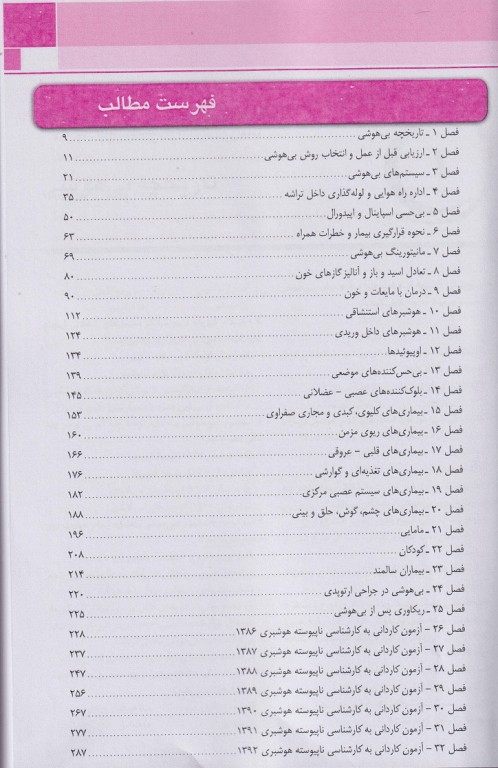 فهرست مطالب
فصل ۱ ـ تاریخچه بی‌هوشی ........ ۹
فصل ۲ ـ ارزیابی قبل از عمل و انتخاب روش بی‌هوشی ........ ۱۱
فصل ۳ ـ سیستم‌های بی‌هوشی ........ ۲۱
فصل ۴ ـ اداره راه هوایی و لوله‌گذاری داخل تراشه ........ ۳۵
فصل ۵ ـ بی‌حسی اسپاینال و اپیدورال ........ ۵۰
فصل ۶ ـ نحوه قرارگیری بیمار و خطرات همراه ........ ۶۳
فصل ۷ ـ مانیتورینگ بی‌هوشی ........ ۶۹
فصل ۸ ـ تعادل اسید و باز و آنالیز گازهای خون ........ ۸۰
فصل ۹ ـ درمان با مایعات و خون ........ ۹۰
فصل ۱۰ ـ هوشبرهای استنشاقی ........ ۱۱۲
فصل ۱۱ ـ هوشبرهای داخل وریدی ........ ۱۲۴
فصل ۱۲ ـ اوپیوئیدها ........ ۱۳۴
فصل ۱۳ ـ بی‌حس‌کننده‌های موضعی ........ ۱۳۹
فصل ۱۴ ـ بلوک‌کننده‌های عصبی - عضلانی ........ ۱۴۵
فصل ۱۵ ـ بیماری‌های کلیوی، کبدی و مجاری صفراوی ........ ۱۵۳
فصل ۱۶ ـ بیماری‌های ریوی مزمن ........ ۱۶۰
فصل ۱۷ ـ بیماری‌های قلبی - عروقی ........ ۱۶۶
فصل ۱۸ ـ بیماری‌های تغذیه‌ای و گوارشی ........ ۱۷۶
فصل ۱۹ ـ بیماری‌های سیستم عصبی مرکزی ........ ۱۸۲
فصل ۲۰ ـ بیماری‌های چشم، گوش، حلق و بینی ........ ۱۸۸
فصل ۲۱ ـ مامایی ........ ۱۹۶
فصل ۲۲ ـ کودکان ........ ۲۰۸
فصل ۲۳ ـ بیماران سالمند ........ ۲۱۴
فصل ۲۴ ـ بی‌هوشی در جراحی ارتوپدی ........ ۲۲۰
فصل ۲۵ ـ ریکاوری پس از بی‌هوشی ........ ۲۲۵
فصل ۲۶ - آزمون کاردانی به کارشناسی ناپیوسته هوشبری ۱۳۸۶ ........ ۲۲۸
فصل ۲۷ - آزمون کاردانی به کارشناسی ناپیوسته هوشبری ۱۳۸۷ ........ ۲۳۷
فصل ۲۸ - آزمون کاردانی به کارشناسی ناپیوسته هوشبری ۱۳۸۸ ........ ۲۴۷
فصل ۲۹ - آزمون کاردانی به کارشناسی ناپیوسته هوشبری ۱۳۸۹ ........ ۲۵۶
فصل ۳۰ - آزمون کاردانی به کارشناسی ناپیوسته هوشبری ۱۳۹۰ ........ ۲۶۷
فصل ۳۱ - آزمون کاردانی به کارشناسی ناپیوسته هوشبری ۱۳۹۱ ........ ۲۷۷
فصل ۳۲ - آزمون کاردانی به کارشناسی ناپیوسته هوشبری ۱۳۹۲ ........ ۲۸۷